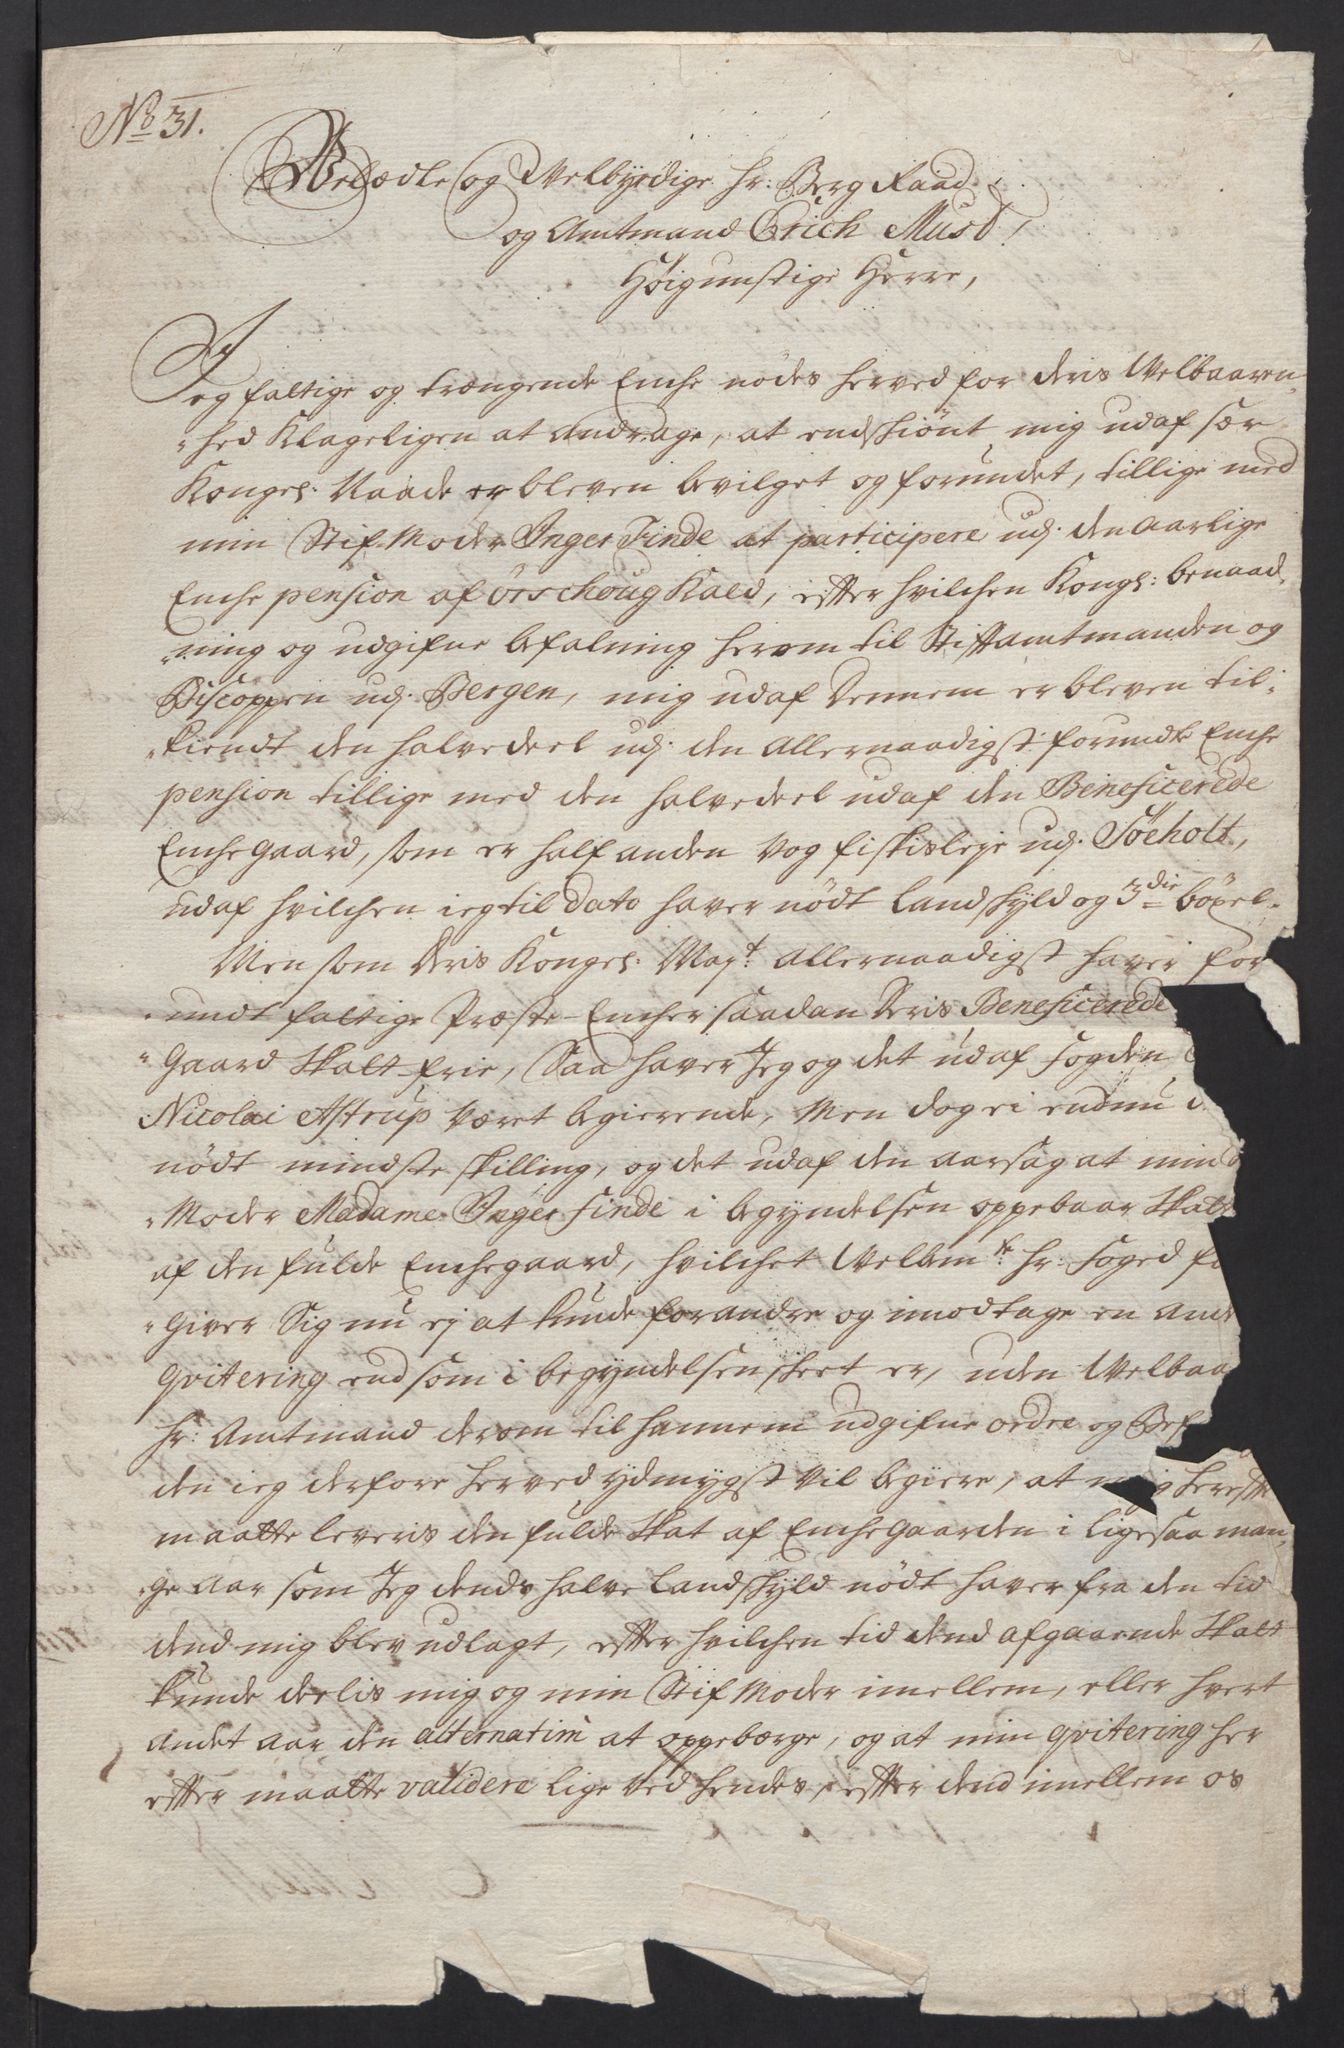 No 31.
Velædle og Velbyrdige Hr: Berg Raad
og Amtmand Erich Must!
Høigunstige Herre,
Jeg fattige og trængende Enche nødes herved for deris Velbaaren-
-hed Klageligen at andrage, at endskiønt mig udaf sær
Kongel: Naade er bleven bevilget og forundet, tillige med
min Stif-Moder Inger Finde at participere udj den aarlige
Enche pension af Örschoug Kald, efter hvilchen Kongl: benaad-
-ning og udgifne befalning herom til Stiftamtmanden og
Biscoppen udj Bergen, mig udaf dennem er bleven til-
-kiendt den halvedeel udj den allernaadigst forundte Enche
pension tillige med den halvedeel udaf den Beneficerede
Enchegaard, som er half anden Vog fiskisleje udj Söeholt,
udaf hvilchen ieg til dato haver nødt Landskyld og 3die böxel.
Men som deris Kongel: Mayt: allernaadigst haver for-
-undt fattige Præste-Encher saadan deris Beneficerede
-gaard Skatt-frie, Saa haver Jeg og det udaf fogden
Nicolai Astrup været begierende, Men dog ei endnu
nödt mindste skilling, og det udaf den aarsag at min
-Moder Madame Inger Finde i begyndelsen oppebaar Skatt
af den fulde Enchegaard, hvilchet Velbemte: Hr: foged
-giver Sig nu ej at kunde forandre og imodtage en
Qvitering end som i begyndelsen skeet er, uden Velbaa
Hr: Amtmand derom til hannem udgifne ordre og Bef
den ieg derfore herved ydmygst vil begiere, at mig herefter
maatte leveris den fulde skat af Enchegaarden i ligesaa man-
-ge aar som Jeg dends halve Landskyld nødt haver fra den tid
dend mig blev udlagt, efter hvilchen tid dend afgaaende Skatt
kunde deelis mig og min Stif Moder imellem, eller hvert
andet aar den alternatim at oppebærge, og at min qvitering her
efter maatte validere lige ved hendes, efter dend imellem os